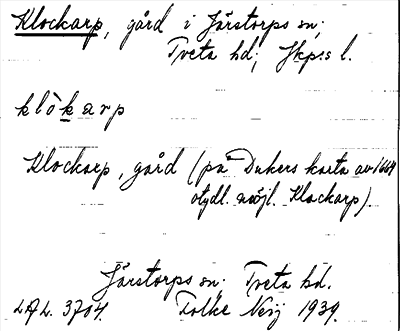 Klockarp, gård i Järstorps sn;
Tveta hd; Jkp:s l.
klòkarp
Klockarp, gård (på Dukers karta av 1669
otydl. möjl. Klackarp).
Järstorps sn; Tveta hd.
LAL. 3704. Folke Neij 1939.